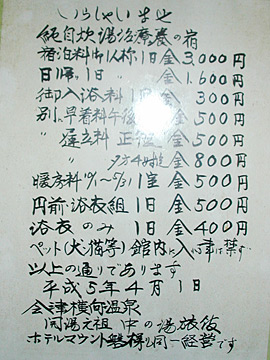 いらっしゃいませ
純自炊湯治療養の宿
宿泊料お1人称1日金3,000円
日帰り1日 金1,600円
御入浴料1日金300円
別、早着料午後 金500円
〃 遅立料 正 金500円
〃 夕方4時 金800円
暖房料10/1〜5/31 1室 金500円
丹前・浴衣組1日金500円
浴衣のみ 1日金400円
ペット(犬猫等)館内に入る事は禁ず
以上の通りであります
平成5年4月1日
会津横向温泉
開湯元祖 中の湯旅館
ホテルマウント磐梯も同一経営です